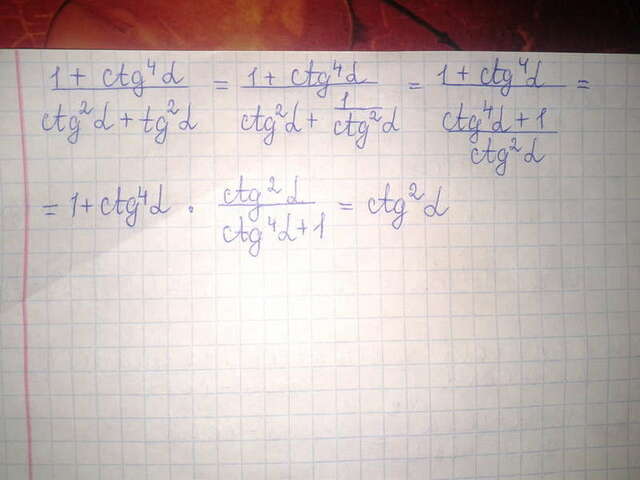 (1 + ctg⁴α)/(ctg²α + tg²α) = (1 + ctg⁴α)/(ctg²α + 1/(ctg²α)) = (1 + ctg⁴α)/((ctg⁴α + 1)/(ctg²α)) =
= 1 + ctg⁴α · (ctg²α)/(ctg⁴α + 1) = ctg²α